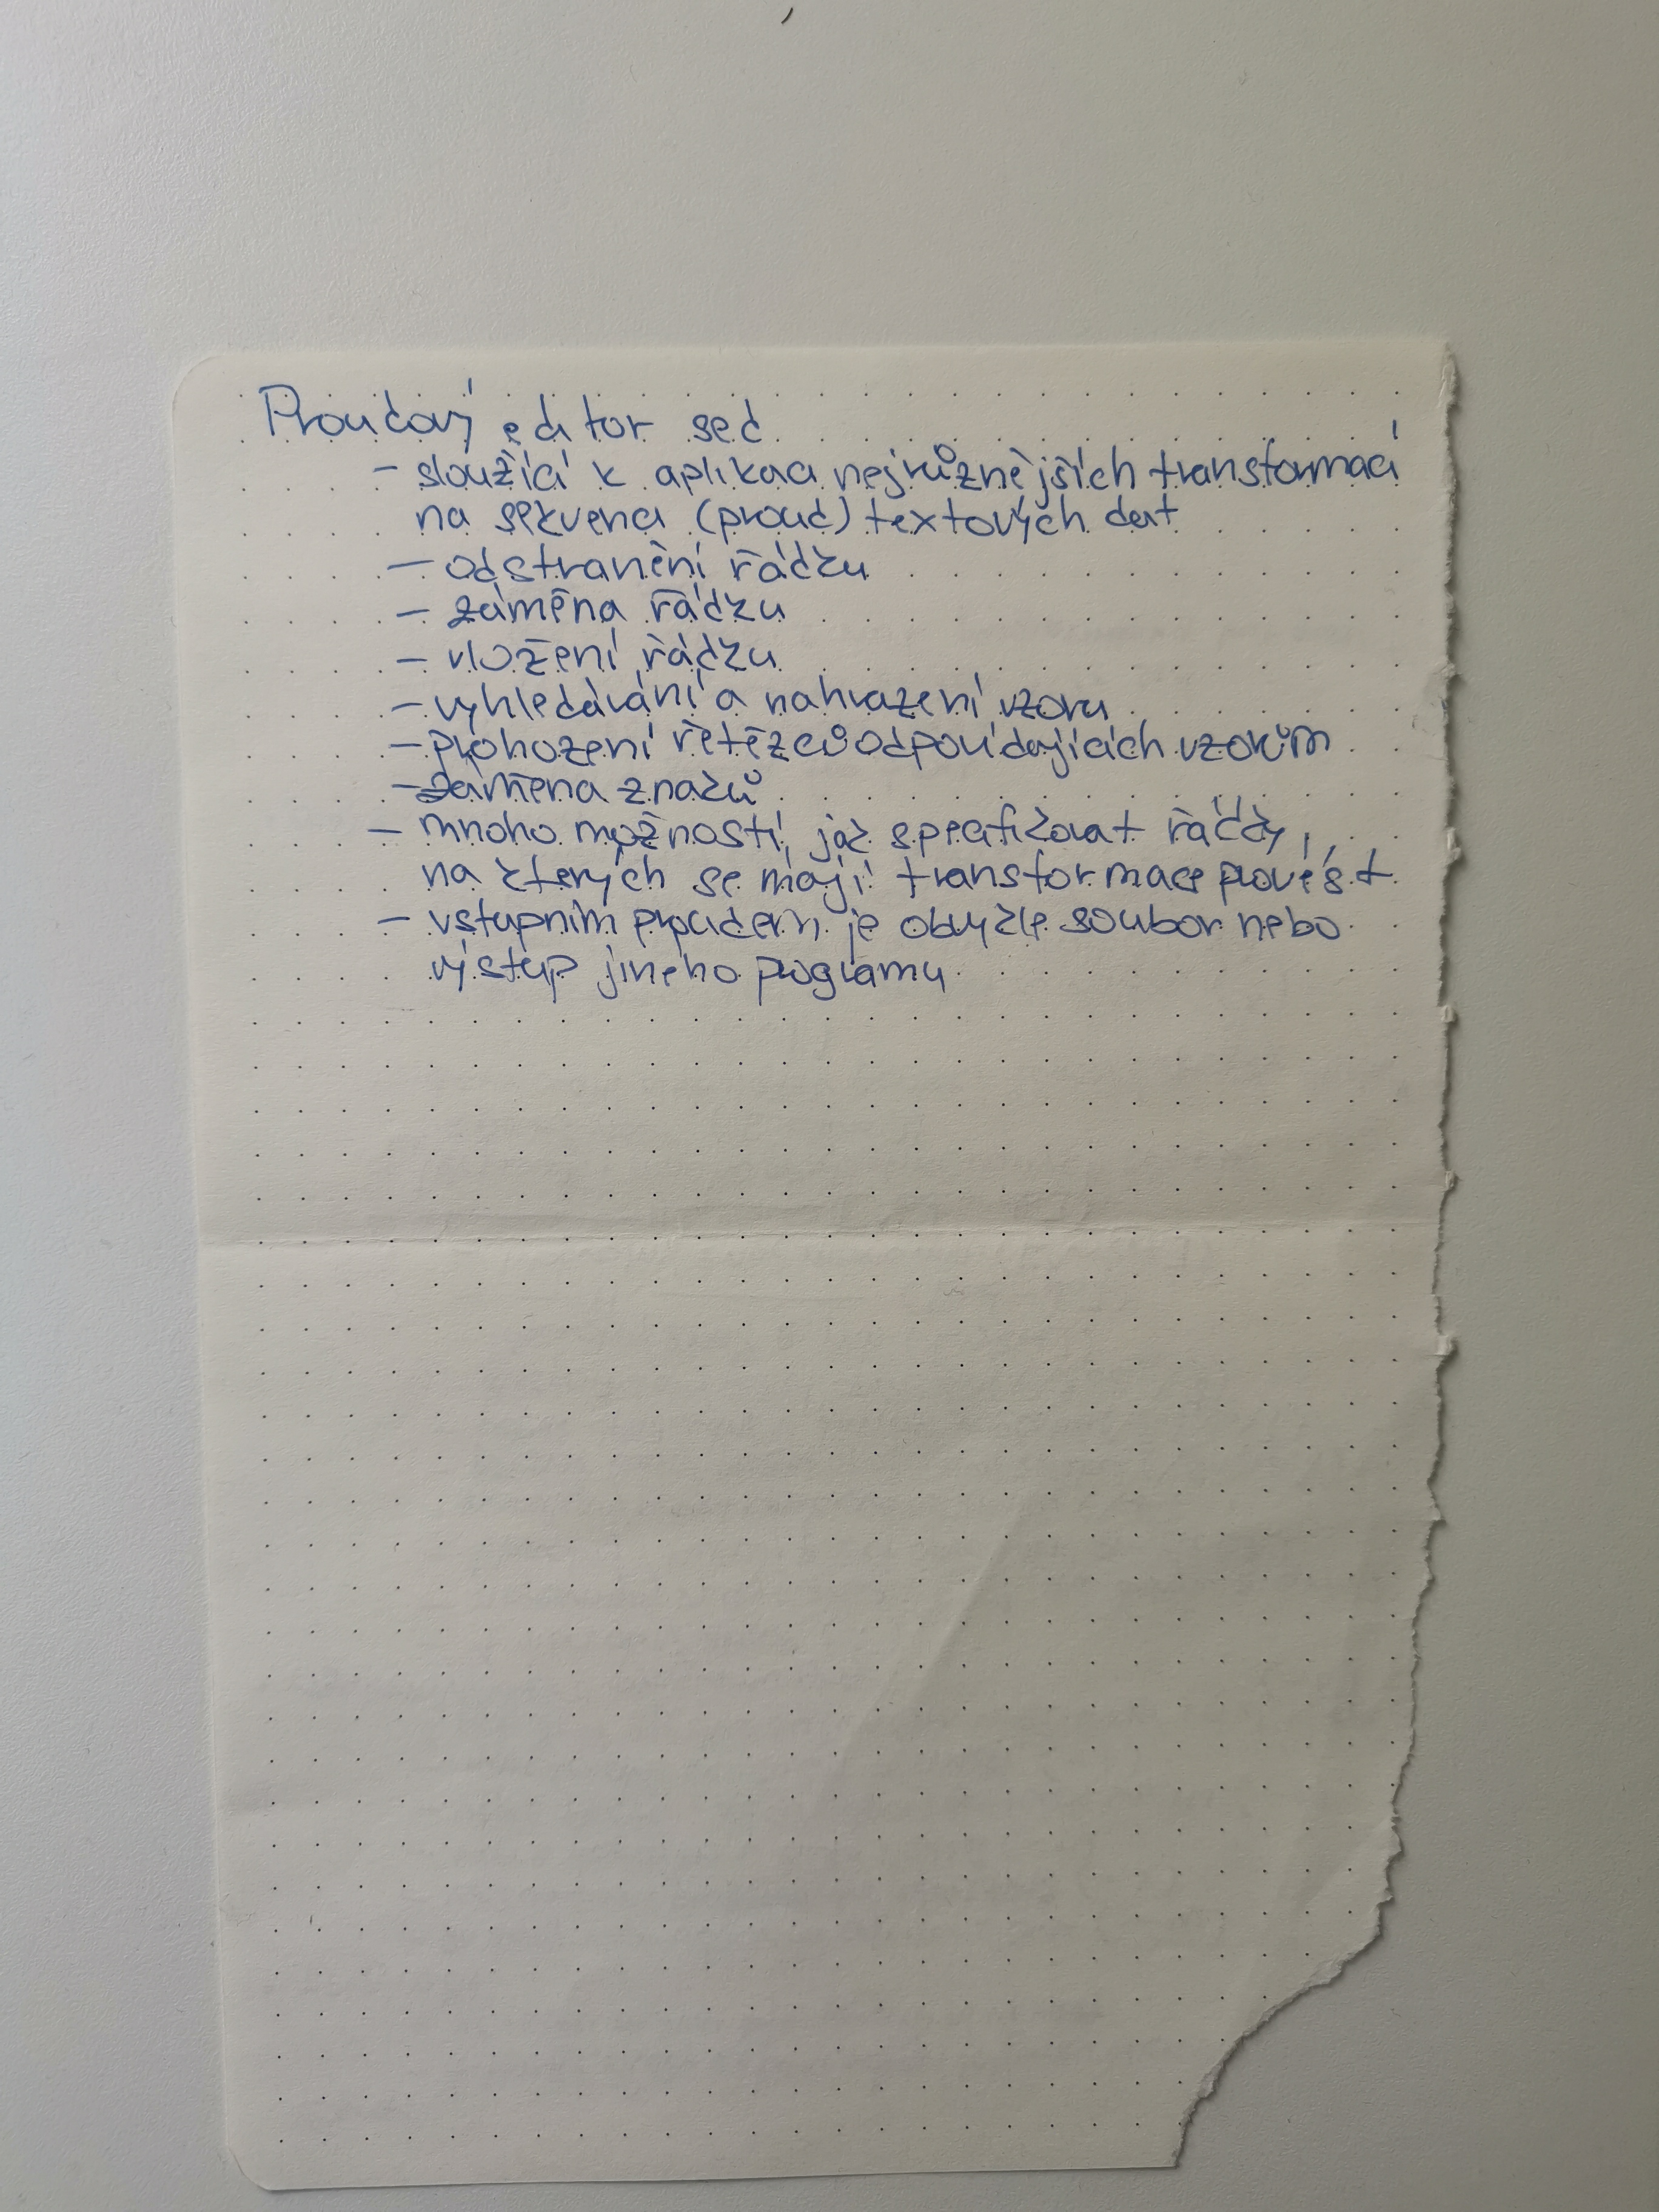 Proudový editor sed
- sloužící k aplikaci nejrůznějších transformací
na sekvenci (proud) textových dat
- odstranění řádku
- záměna řádku
- vložení řádku
- vyhledávání a nahrazení vzoru
- prohození řetězců odpovídajících vzorům
- záměna znaků
- mnoho možností, jak specifikovat řádky,
na kterých se mají transformace provést
- vstupním proudem je obvykle soubor nebo
výstup jiného programu